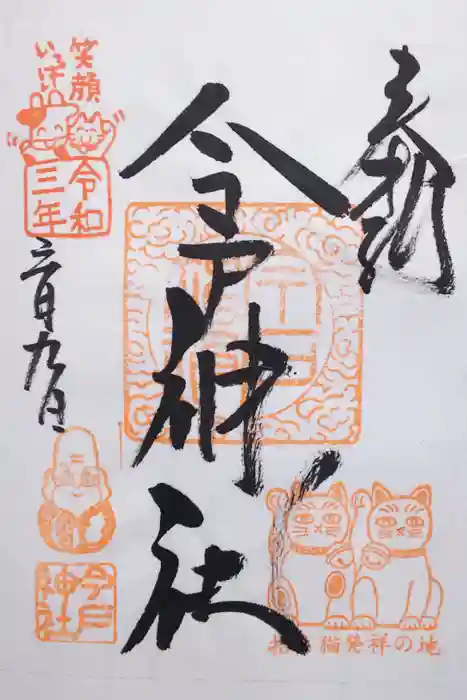 奉拝
今戸神社
笑顔
いっぱい
令和
三年
三月九日
今戸
神社
招き猫発祥の地